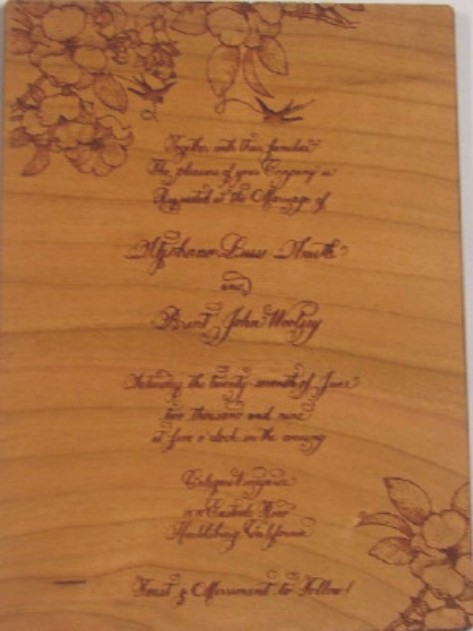 Together with their families
The pleasure of your Company is
Requested at the Marriage of
Stephanie
and
Brent John Woolsey
Saturday the twenty seventh of June
two thousand and nine
at five o'clock in the evening
Healdsburg California
Feast & Merriment to Follow!